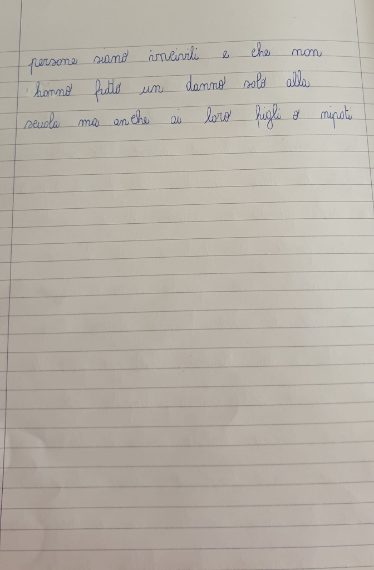 persone siano incivili e che non
hanno fatto un danno solo alla
scuola ma anche ai loro figli o nipoti